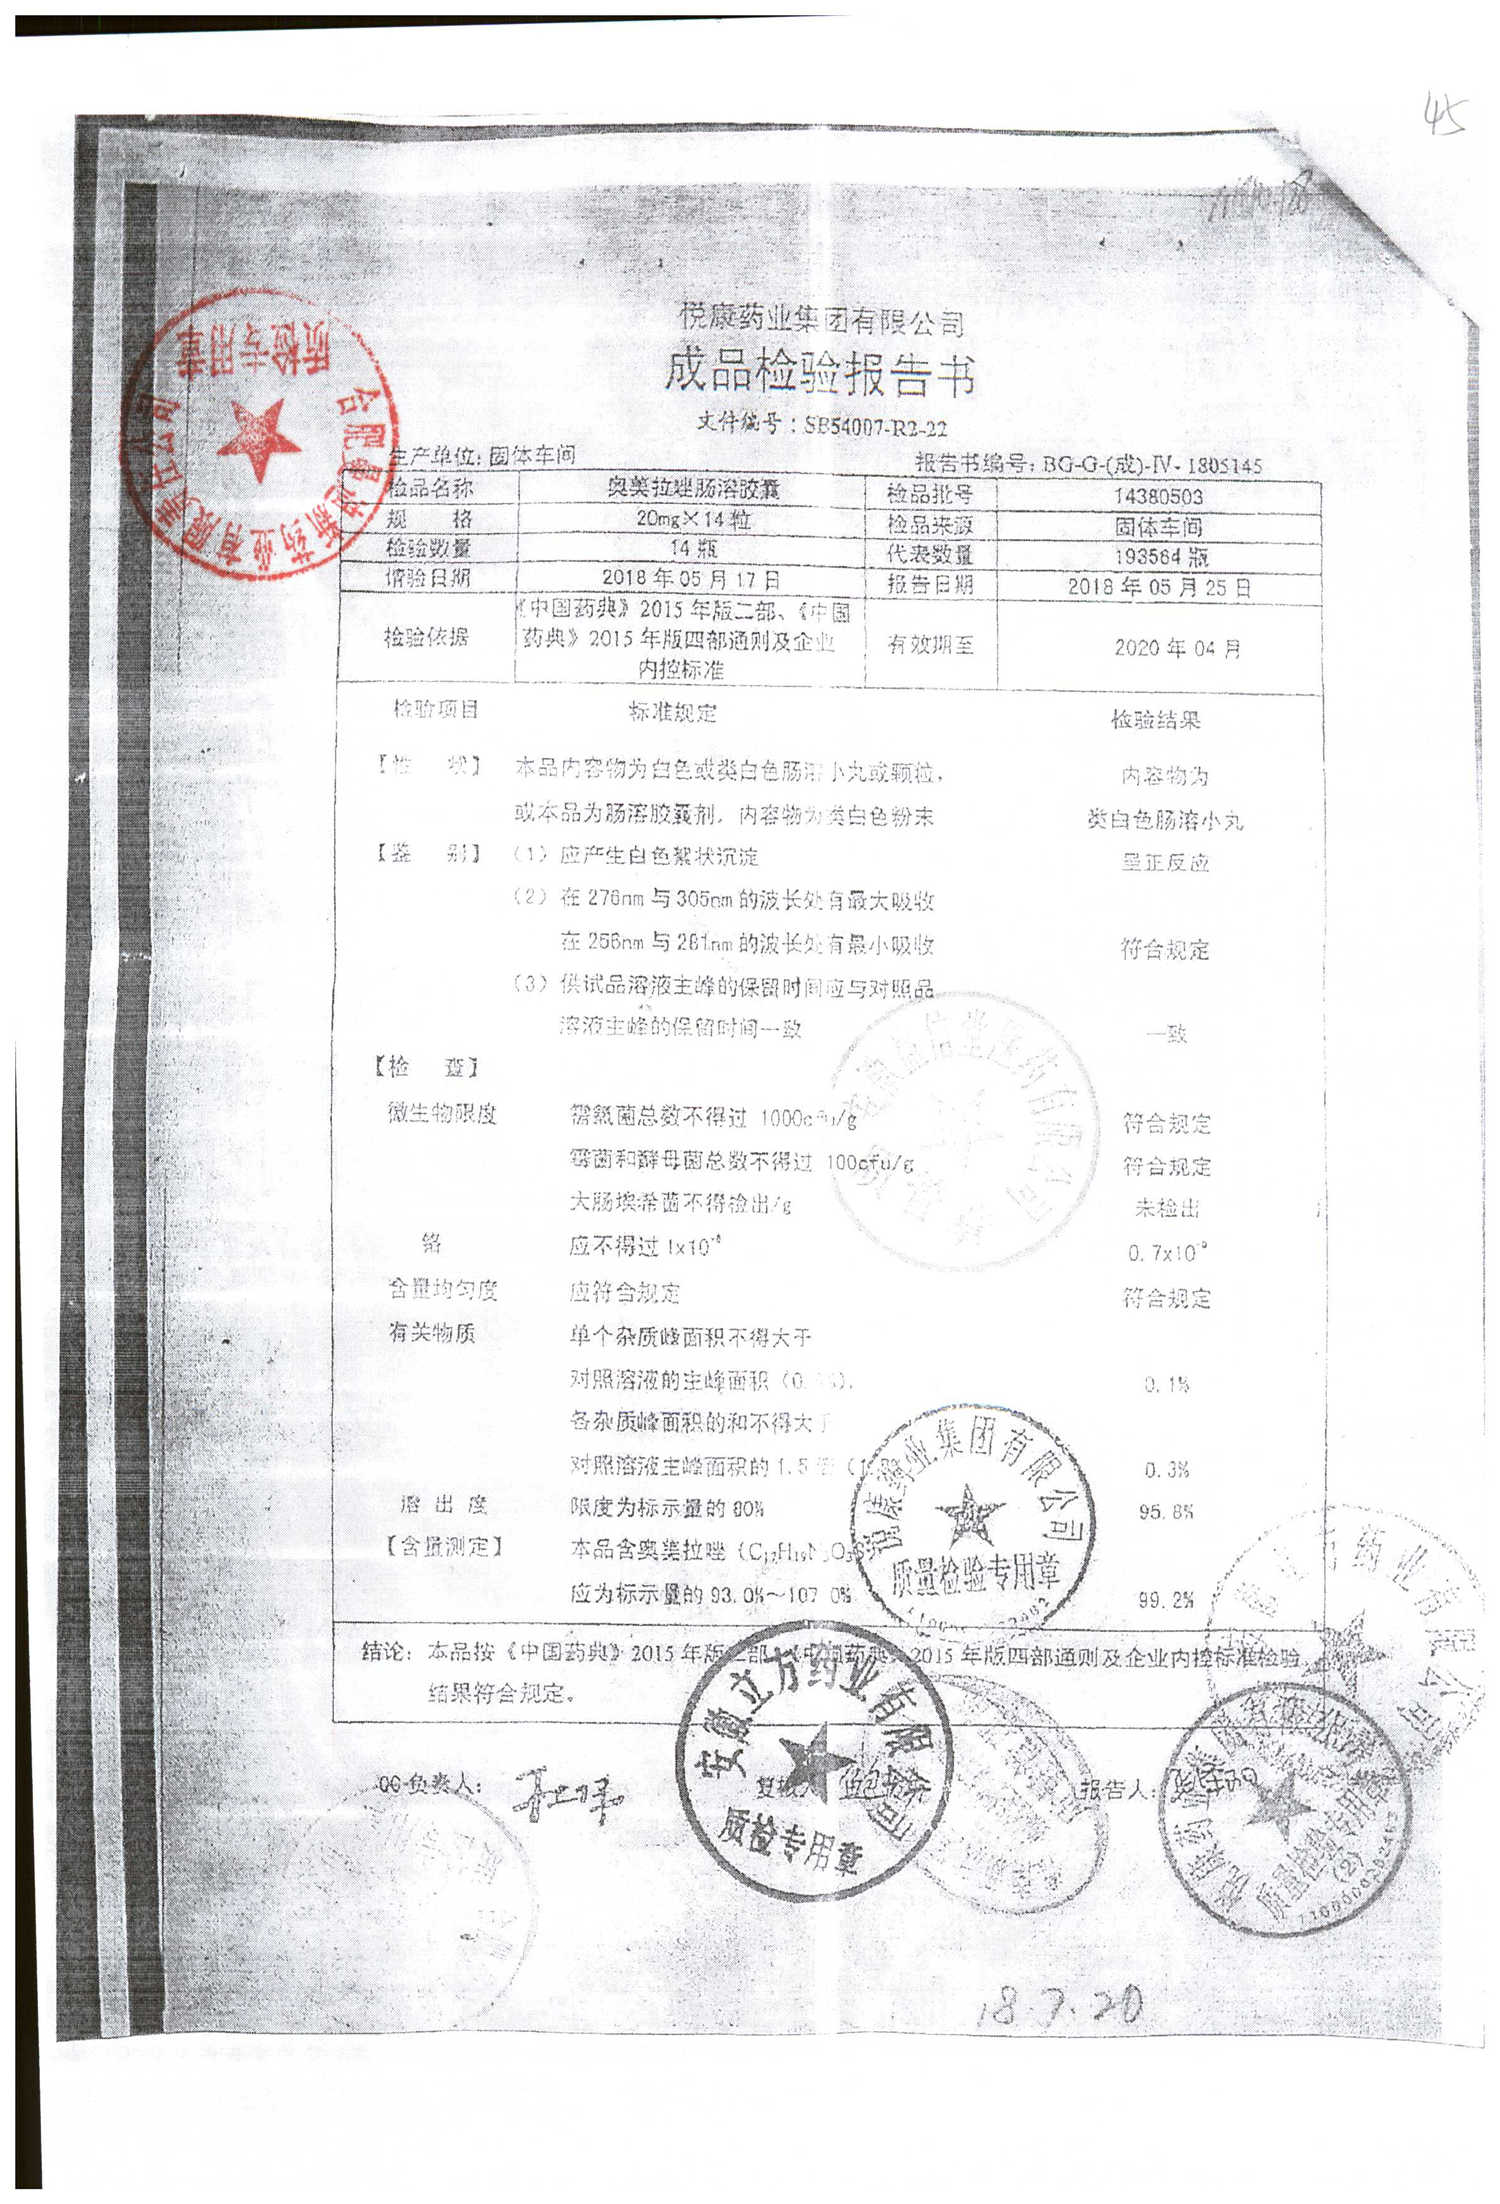 45
悦康药业集团有限公司
成品检验报告书
文件编号：SB54007-R2-22
生产单位：固体车间 报告书编号：BG-G-(成)-IV-1805145
检品名称 奥美拉唑肠溶胶囊 检品批号 14380503
规 格 20mg×14粒 检品来源 固体车间
检验数量 14瓶 代表数量 193564瓶
请验日期 2018年05月17日 报告日期 2018年05月25日
检验依据 《中国药典》2015年版二部、《中国药典》2015年版四部通则及企业内控标准 有效期至 2020年04月
检验项目 标准规定 检验结果
【性 状】 本品内容物为白色或类白色肠溶小丸或颗粒， 内容物为
或本品为肠溶胶囊剂，内容物为类白色粉末 类白色肠溶小丸
【鉴 别】 （1）应产生白色絮状沉淀 呈正反应
（2）在276nm与305nm的波长处有最大吸收
在256nm与281nm的波长处有最小吸收 符合规定
（3）供试品溶液主峰的保留时间应与对照品
溶液主峰的保留时间一致 一致
【检 查】
微生物限度 需氧菌总数不得过 1000cfu/g 符合规定
霉菌和酵母菌总数不得过 100cfu/g 符合规定
大肠埃希菌不得检出/g 未检出
铬 应不得过1x10 0.7x10
含量均匀度 应符合规定 符合规定
有关物质 单个杂质峰面积不得大于
对照溶液的主峰面积（0. 0.1%
各杂质峰面积的和不得大于
对照溶液主峰面积的1.5倍 0.3%
溶 出 度 限度为标示量的80% 95.8%
【含量测定】 本品含奥美拉唑（C17H19N3O3S）
应为标示量的93.0%～107.0% 99.2%
结论：本品按《中国药典》2015年版二部、《中国药典》2015年版四部通则及企业内控标准检验，
结果符合规定。
QC负责人： 复核人 报告人：
18.7.20
合肥曼迪新药业有限责任公司
质检专用章
悦康药业集团有限公司
质量检验专用章
安徽立方药业有限公司
质检专用章
质量检验专用章
(2)